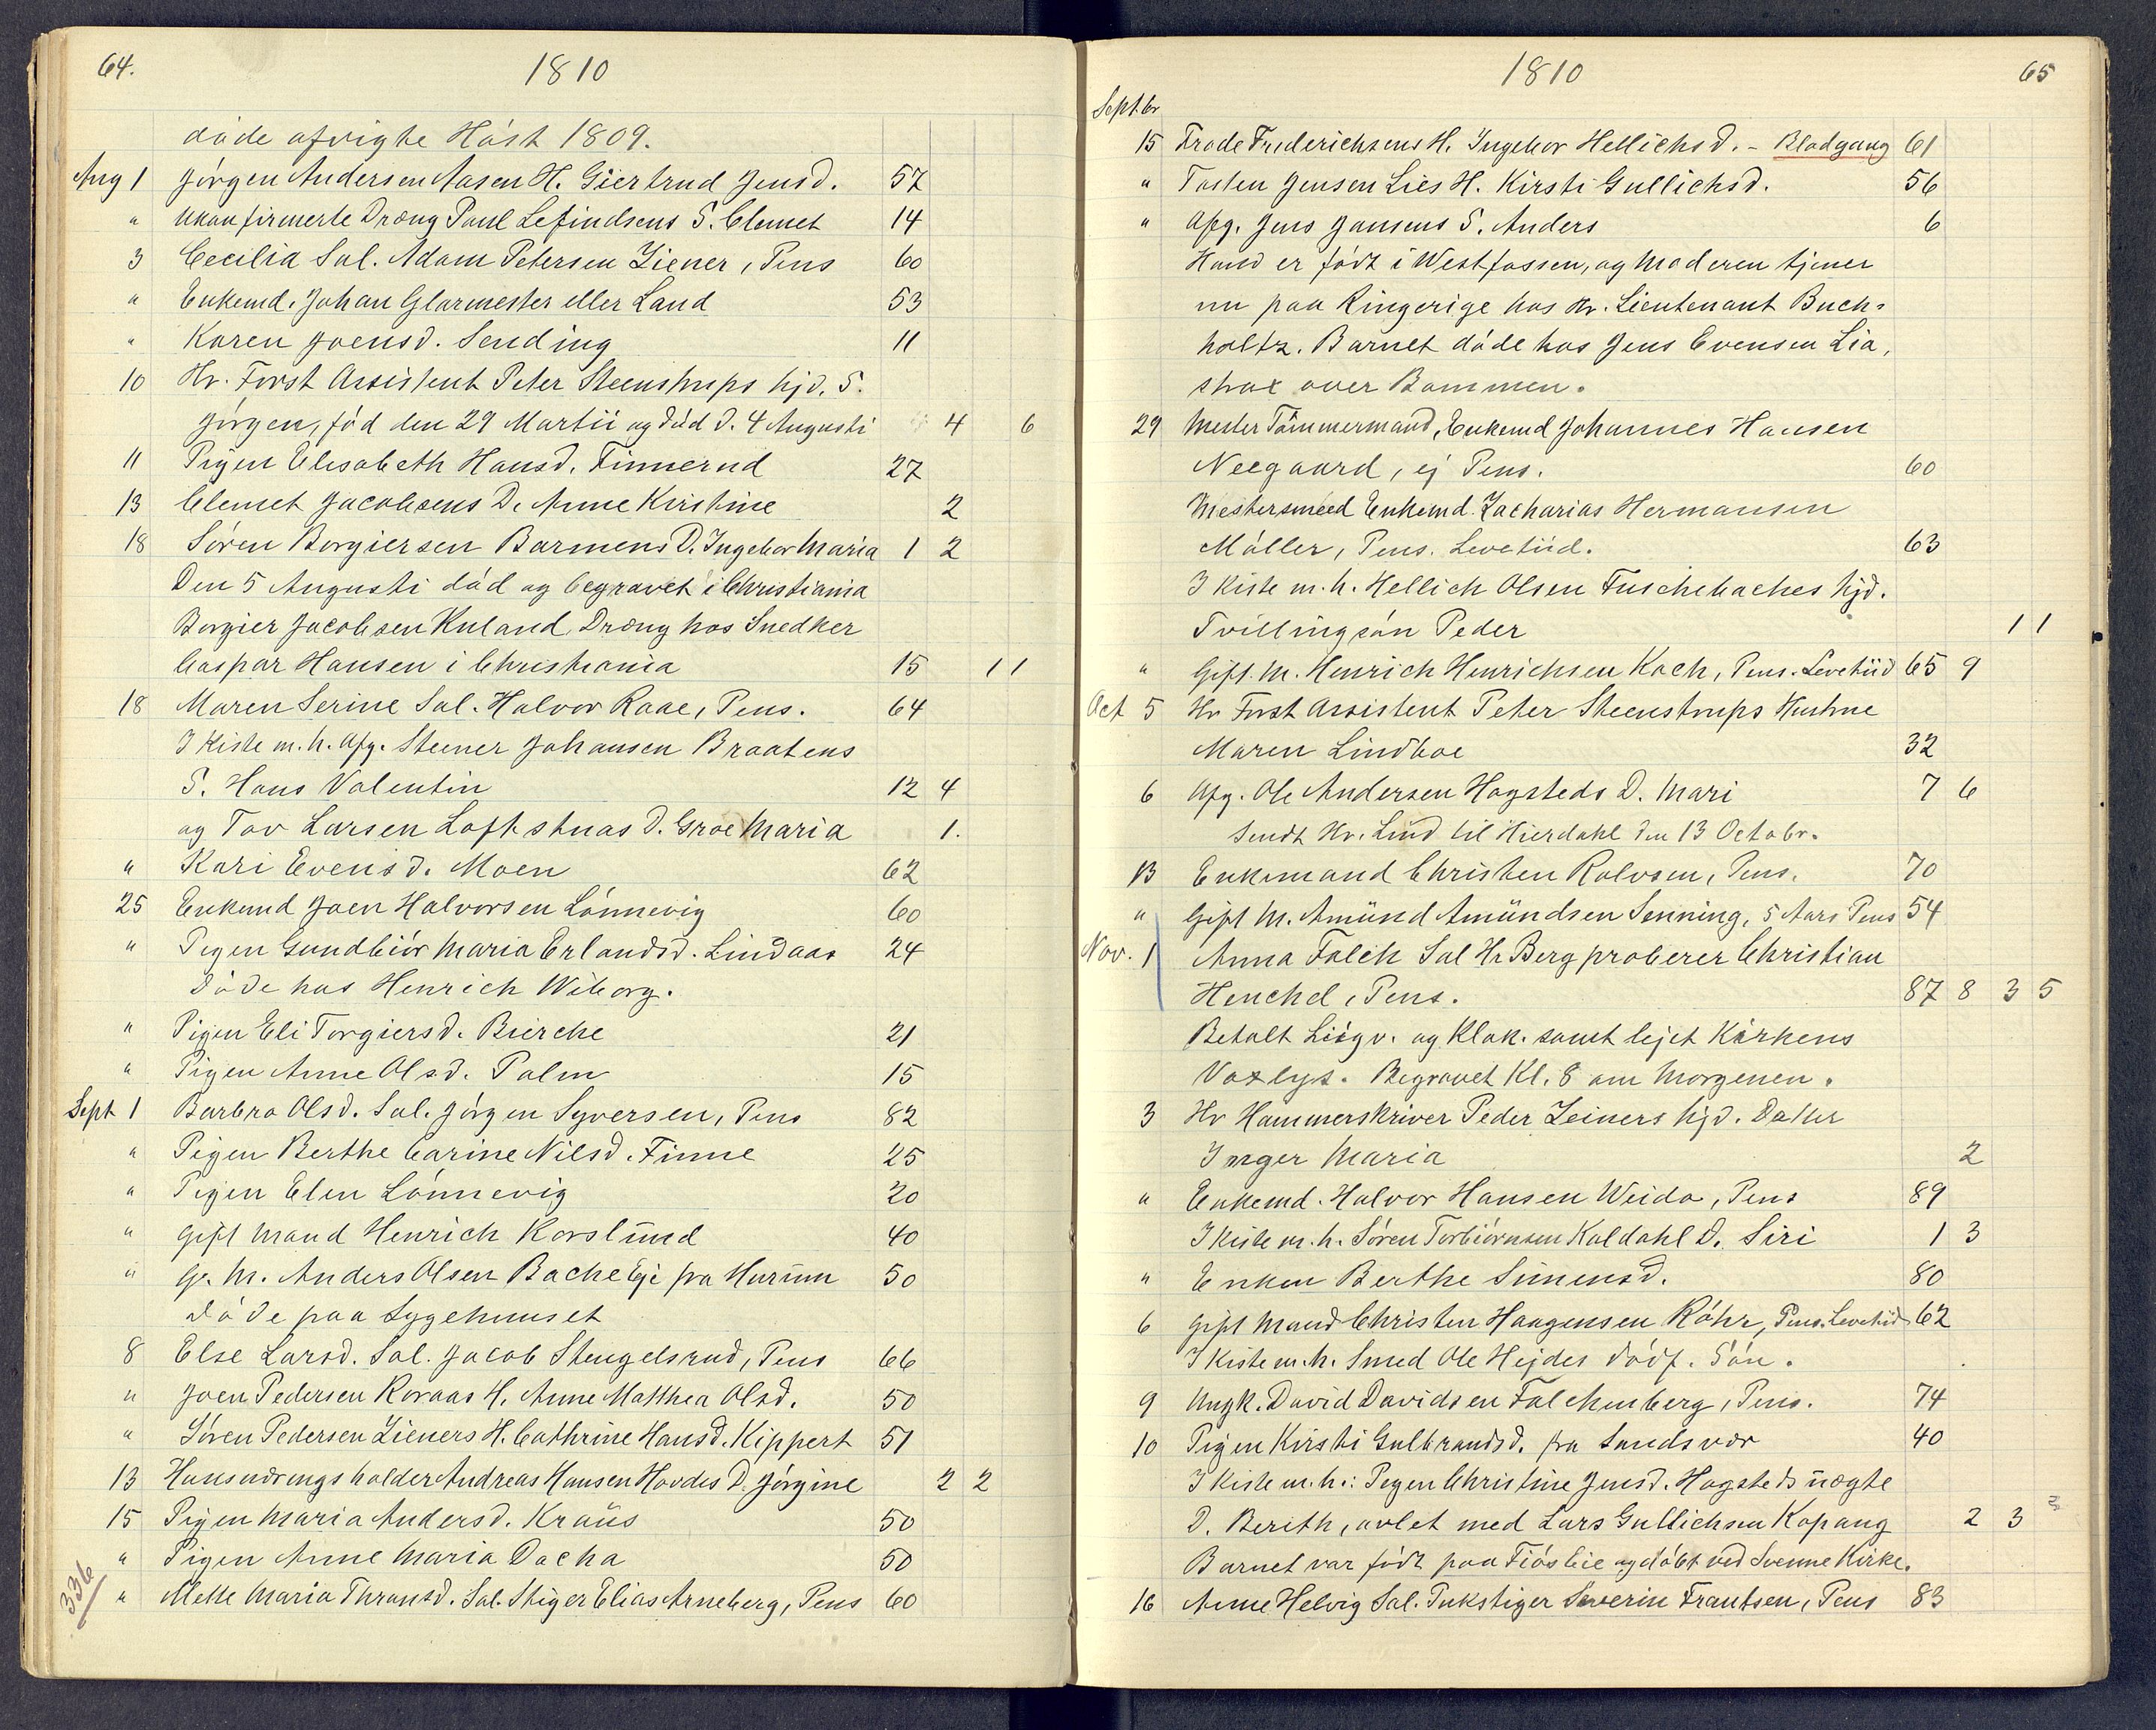 64.
1810
döde afvigte Höst 1809.
Aug 1 Jörgen Andersen Aasen H. Giertrud Jensd. 57
" Ukonfirmerte Dræng Poul Lefindsens S. Clemet 14
3 Cecilia Sal. Adam Petersen Ziener, Pens 60
" Enkemd. Johan Glarmester eller Land 53
" Karen Joensd. Sending 11
10 Hr. Forst Assistent Peter Steenstrups hjd. S.
Jörgen, föd den 29 Martii og död d. 4 Augusti 4 6
11 Pigen Elisabeth Hansd. Finnerud 27
13 Clemet Jacobsens D. Anne Kirstine 2
18 Sören Borgiersen Barmens D. Ingebor Maria 1 2
Den 5 Augusti död og begravet i Christiania
Borgier Jacobsen Ruland, Dræng hos Snedker
Caspar Hansen i Christiania 15 11
18 Maren Serine Sal. Halvor Raae, Pens. 64
I Kiste m. h. Afg. Steener Johansen Braatens
S. Hans Valentin 12 4
og Tov Larsen Loftstuas D. Groe Maria 1.
" Kari Evensd. Moen 62
25 Enkemd Joen Halvorsen Lönnevig 60
" Pigen Gundbiör Maria Erlandsd. Lindaas 24
döde hos Henrich Wiborg.
" Pigen Eli Torgiersd. Bierche 21
" Pigen Anne Olsd. Palm 15
Sept 1 Barbro Olsd. Sal. Jörgen Syversen, Pens 82
" Pigen Berthe Carine Nilsd. Finne 25
" Pigen Elen Lönnevig 20
" Gift Mand Henrich Korslund 40
" G. M. Anders Olsen Bache Eje fra Hurum 50
döde paa Sygehuuset
8 Else Larsd. Sal. Jacob Stengelsrud, Pens 66
" Joen Pedersen Rovaas H. Anne Matthea Olsd. 50
" Sören Pedersen Zieners H. Cathrine Hansd. Kippert 51
13 Husundrengsholder Andreas Hansen Hovdes D. Jörgine 2 2
15 Pigen Maria Andersd. Kraüs 50
" Pigen Anne Maria Dacha 50
" Mette Maria Thronsd. Sal. Stiger Elias Arneberg, Pens 60
336
1810
65
Septbr
15 Frode Friderichsens H. Ingebor Hellichsd. - Blodgang 61
" Tosten Jensen Lies H. Kirsti Gullichsd. 56
" Afg. Jens Jansens S. Anders 6
Hand er född i Westfossen, og Moderen tjener
nu paa Ringerige hos Hr. Lieutenant Buch=
holtz. Barnet döde hos Jens Evensen Lia,
strax over Bommen.
29 Mester Tömmermand, Enkemd Johannes Hansen
Neegaard, ej Pens. 60
Mestersmeed Enkemd. Zacharias Hermansen
Möller, Pens. Levetiid. 63
I Kiste m. h. Hellich Olsen Fuschebaches hjd.
Tvillingsön Peder 11
" Gift M. Henrich Henrichsen Koch, Pens. Levetiid 65 9
Oct 5 Hr Forst Assistent Peter Steenstrups Hustrue
Maren Lindboe 32
6 Afg. Ole Andersen Hagsteds D. Mari 7 6
Sendt Hr. Lind til Hierdahl den 13 Octobr.
13 Enkemand Christen Rolvsen, Pens. 70
" Gift M. Amünd Amündsen Senning, 5 Aars Pens 54
Nov. 1 Anna Falck Sal Hr Bergproberer Christian
Henchel, Pens. 87 8 3 5
Betalt Liigv. og Klok. samt lejet Kirkens
Voxlys. Begravet Kl. 8 om Morgenen.
3 Hr Hammerskriver Peder Zeiners hjd. Datter
Inger Maria 2
" Enkemd. Halvor Hansen Weida, Pens 89
I Kiste m. h. Sören Torbiörnsen Koldahl D. Siri 1 3
" Enken Berthe Simensd. 80
6 Gift Mand Christen Haagensen Röhr, Pens. Levetiid 62
I Kiste m. h. Smed Ole Hejdes dödf. Sön.
9 Ungk. David Davidsen Falchenberg, Pens. 74
10 Pigen Kirsti Gulbrandsd. fra Sandsvær 40
I Kiste m. h.: Pigen Christine Jensd. Hagsteds uægte
D. Berith, avlet med Lars Gullichsen Kopang 2 3
Barnet var född paa Fiösbie og döbt ved Svenne Kirke.
16 Anne Helvig Sal. Pukstiger Severin Frantsen, Pens 83